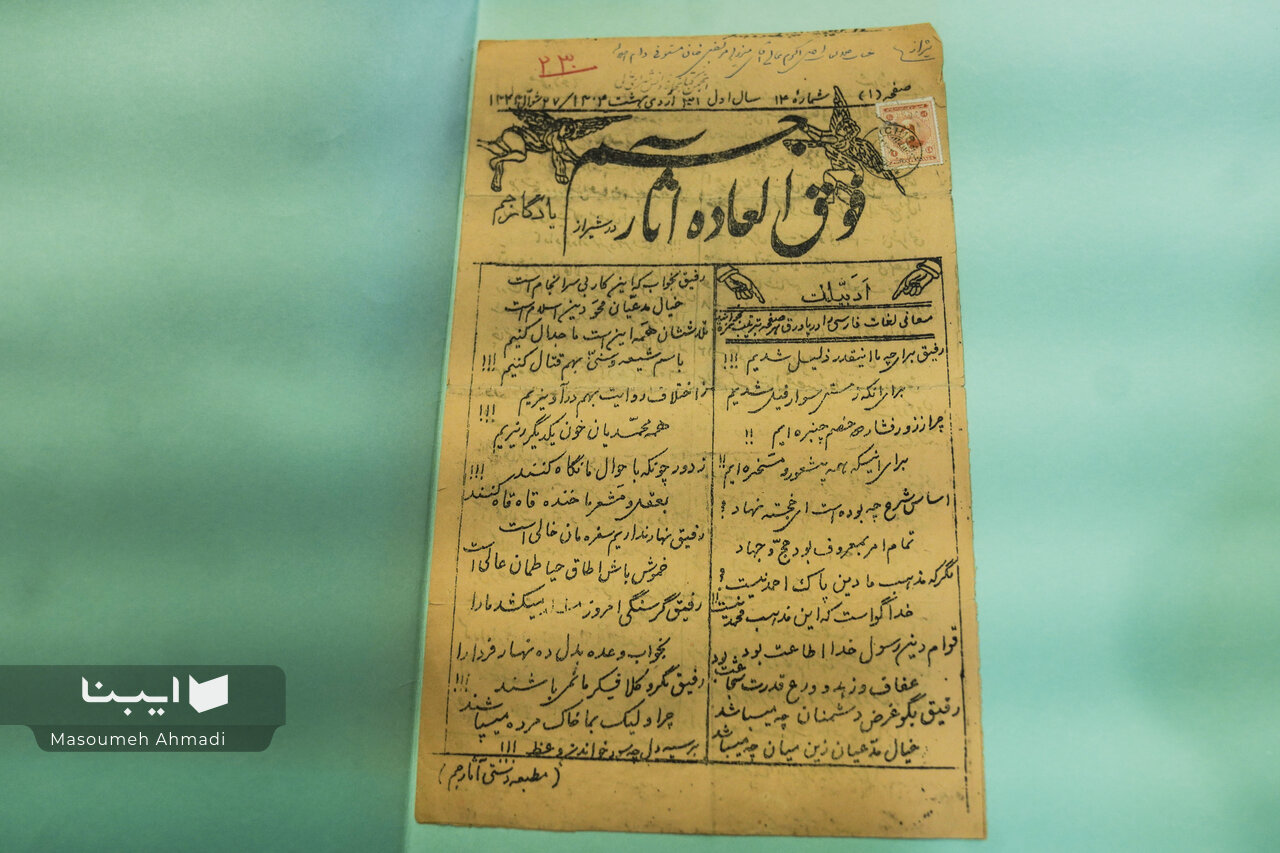 شیراز
۲۳۰
صفحه (۱) شمارهٔ ۱۴ سال اول ۳۱ اردی بهشت ۱۳۰۴ / ۲۷ شوال
فوق العاده آثار جم
در شیراز
یادگار جم
ادبیات
معانی لغات فارسی در پاورقی
رفیق برای چه ما اینقدر ذلیل شدیم !!!
برای آنکه ز مستی سوار فیل شدیم
چرا ز زور فشار خصم چنبره ایم !!
برای اینکه همه بیشعور و مسخره ایم !!
اساس شرع چه بوده است ای خجسته نهاد ؟
تمام امر بمعروف بود حج و جهاد
مگر که مذهب ما دین پاک احمد نیست ؟
خدا گواست که این مذهب محمد نیست !!
قوام دین رسول خدا اطاعت بود
عفاف و زهد و ورع قدرت شجاعت بود
رفیق بگو غرض دشمنان چه میباشد
خیال مدعیان زین میان چه میباشد
رفیق بخواب که این کار بی سرانجام است
خیال مدعیان محو دین اسلام است
تلاششان همه این است ما جدال کنیم
باسم شیعه و سنی بهم قتال کنیم !!!
ز اختلاف روایت بهم در آویزیم
همه محمدیان خون یکدیگر ریزیم !!!
ز دور چونکه باحوال ما نگاه کنند !!!
بعقل و مشعر ما خنده قاه قاه کنند
رفیق نهار نداریم سفره مان خالی است
خموش باش اطاق حیاطمان عالی است
رفیق گرسنگی امروز میکشد ما را
بخواب وعده بدل ده نهار فردا را
رفیق نگر وکلا فکر ما نمی باشند !!!
چرا ولیک بما خاک مرده میپاشند
بر سیه دل چه سود خواندن وعظ !!!
( مطبعه دستی آثار جم )
ایبنا
Masoumeh Ahmadi